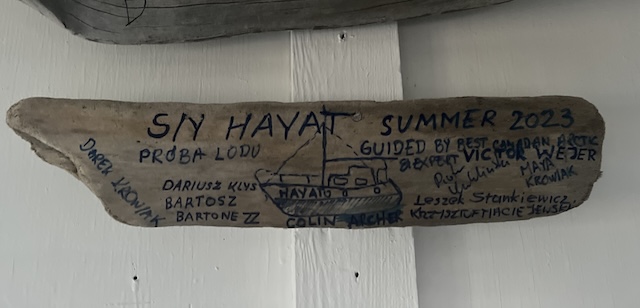 S/Y HAYAT SUMMER 2023
PRÓBA LODU
GUIDED BY BEST CANADIAN ARCTIC
EXPERT VICTOR WEJER
DAREK KROWIAK
MAJA
KROWIAK
DARIUSZ KLYS
BARTOSZ
BARTONEZZ
HAYAT
COLIN ARCHER
Leszek Stankiewicz
KRZYSZTOF MACIEJEWSKI